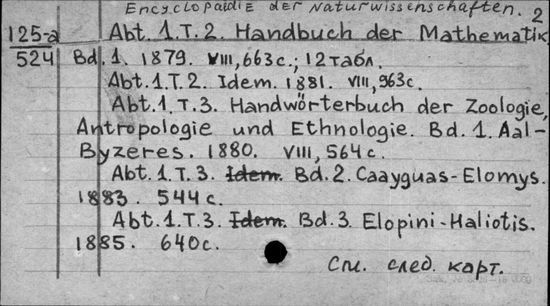 Encyclopädie der Naturwissenschaften. 2
125-a Abt. 1. T. 2. Handbuch der Mathematik
524 Bd. 1. 1879. VIII, 663 с.; 12 табл.
Abt. 1. T. 2. Idem. 1881. VIII, 963 с.
Abt. 1. T. 3. Handwörterbuch der Zoologie,
Antropologie und Ethnologie. Bd. 1. Aal-
Byzeres. 1880. VIII, 564 с.
Abt. 1. T. 3. Idem. Bd. 2. Caayguas-Elomys.
1883. 544 с.
Abt. 1. T. 3. Idem. Bd. 3. Elopini-Haliotis.
1885. 640 с.
См. след. карт.